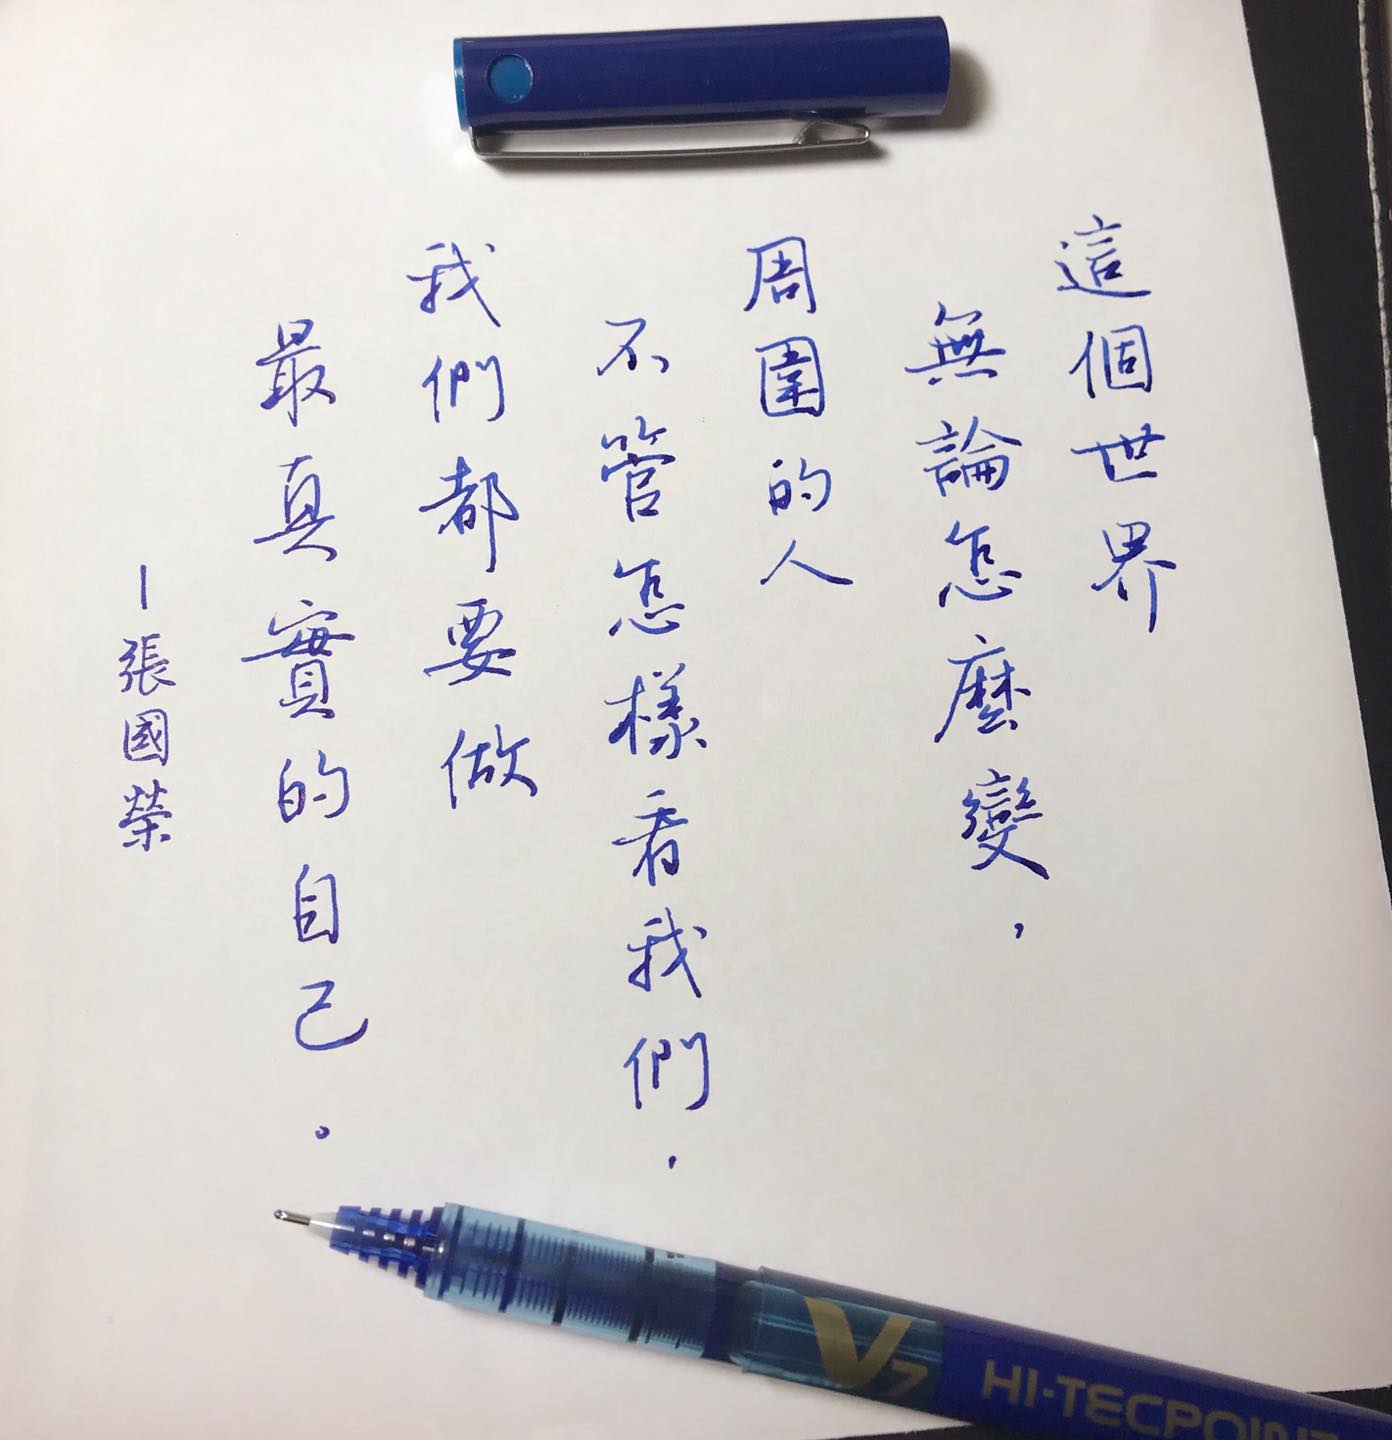 這個世界
無論怎麼變，
周圍的人
不管怎樣看我們，
我們都要做
最真實的自己。
—張國榮
V7 HI-TECPOINT